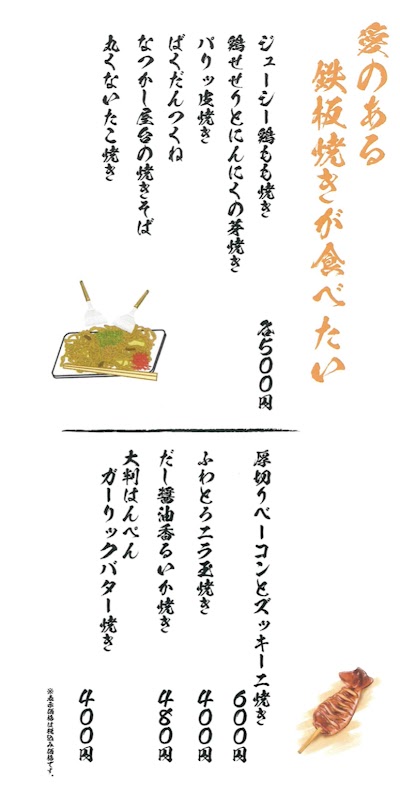 愛のある
鉄板焼きが食べたい
ジューシー鶏もも焼き
鶏せせりとにんにくの芽焼き
パリッ皮焼き
ばくだんつくね
なつかし屋台の焼きそば
丸くないたこ焼き
各500円
厚切りベーコンとズッキーニ焼き
600円
ふわとろニラ玉焼き
400円
だし醤油香るいか焼き
480円
大判はんぺん
ガーリックバター焼き
400円
※表示価格は税込み価格です。